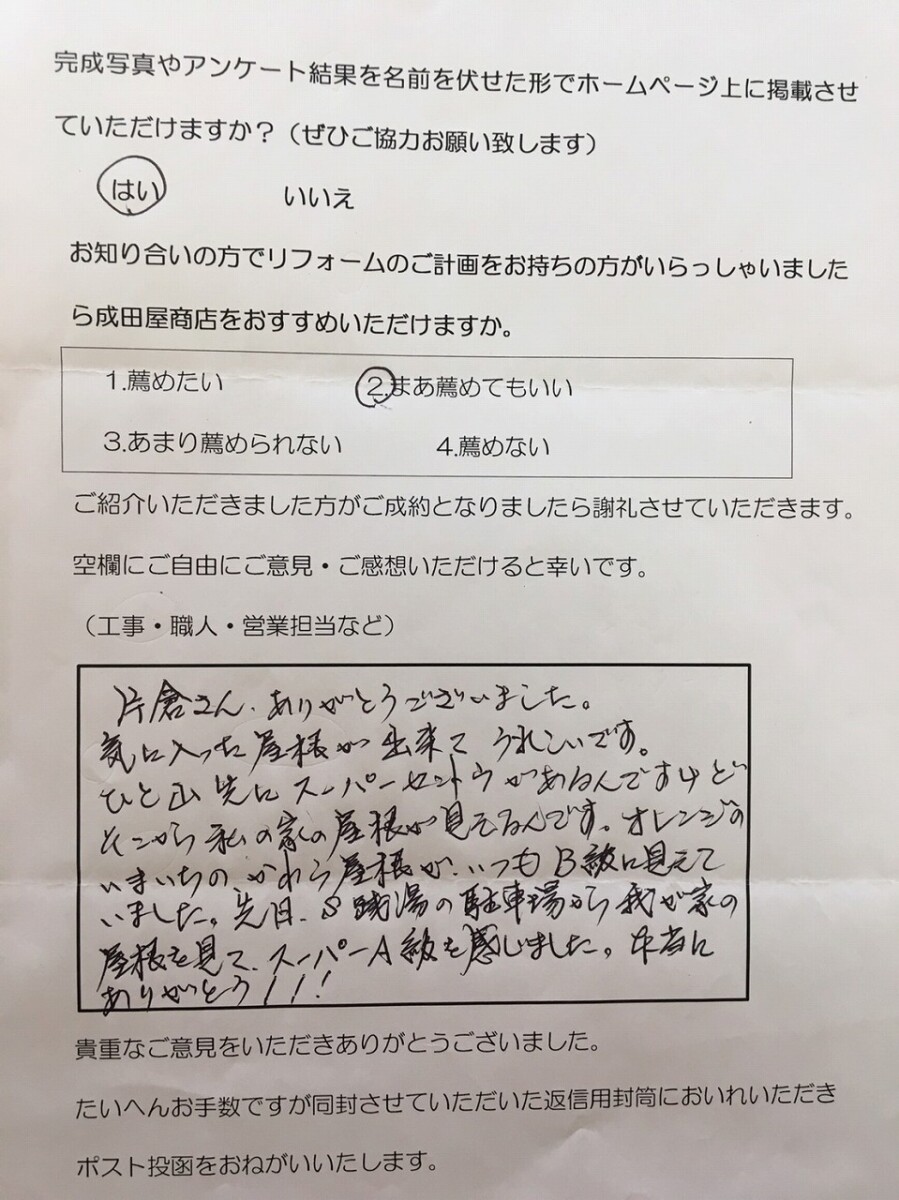 完成写真やアンケート結果を名前を伏せた形でホームページ上に掲載させ
ていただけますか？（ぜひご協力お願い致します）
はい いいえ
お知り合いの方でリフォームのご計画をお持ちの方がいらっしゃいました
ら成田屋商店をおすすめいただけますか。
1.薦めたい 2.まあ薦めてもいい
3.あまり薦められない 4.薦めない
ご紹介いただきました方がご成約となりましたら謝礼させていただきます。
空欄にご自由にご意見・ご感想いただけると幸いです。
（工事・職人・営業担当など）
片倉さん、ありがとうございました。
気に入った屋根が出来て うれしいです。
ひと山先にスーパーセントウがあるんですけど
そこから私の家の屋根が見えるんです。オレンジの
いまいちの、かわら屋根が、いつもB級に見えて
いました。先日、S銭湯の駐車場から我が家の
屋根を見て、スーパーA級を感じました。本当に
ありがとう!!!
貴重なご意見をいただきありがとうございました。
たいへんお手数ですが同封させていただいた返信用封筒においれいただき
ポスト投函をおねがいいたします。